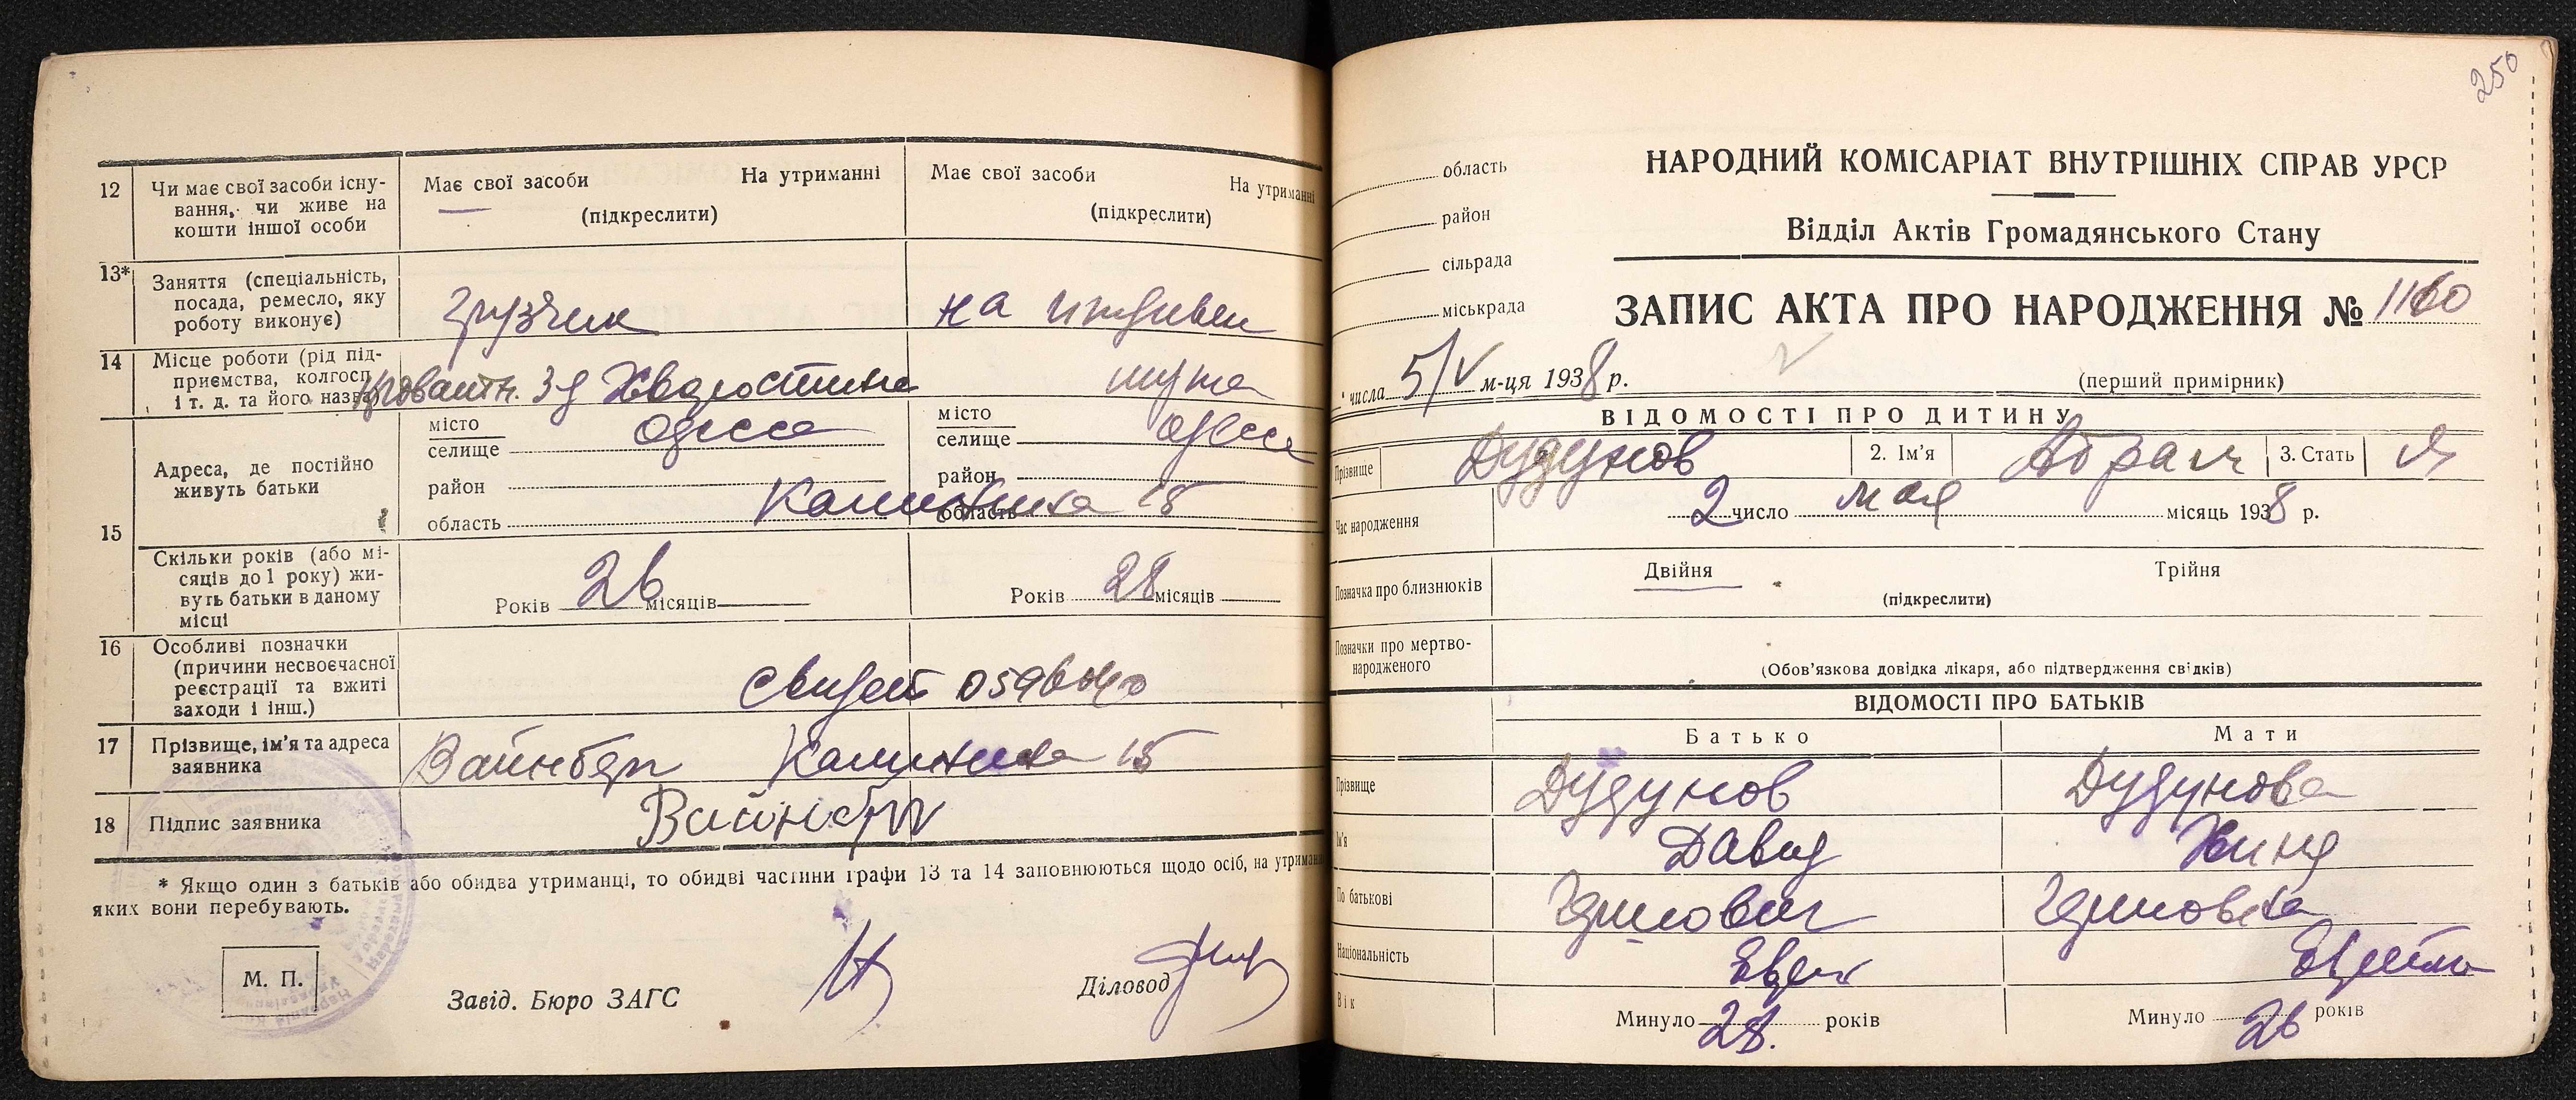 12 Чи має свої засоби існу-
вання, чи живе на
кошти іншої особи
Має свої засоби На утриманні
(підкреслити)
Має свої засоби На утриманні
(підкреслити)
13* Заняття (спеціальність,
посада, ремесло, яку
роботу виконує)
грузчик
на иждивен
14 Місце роботи (рід під-
приємства, колгосп
і т. д. та його назва)
з-д Хворостина
мужа
15 Адреса, де постійно
живуть батьки
місто
селище Одесса
район
область
місто
селище Одесса
район
область
Калинина 15
Скільки років (або мі-
сяців до 1 року) жи-
вуть батьки в даному
місці
Років 26 місяців
Років 28 місяців
16 Особливі позначки
(причини несвоєчасної
реєстрації та вжиті
заходи і інш.)
Свидет
17 Прізвище, ім'я та адреса
заявника
Вайнберг Калинина 15
18 Підпис заявника
Вайнберг
* Якщо один з батьків або обидва утриманці, то обидві частини графи 13 та 14 заповнюються щодо осіб, на утриманні
яких вони перебувають.
М. П.
Завід. Бюро ЗАГС
Діловод
250
область
район
сільрада
міськрада
НАРОДНИЙ КОМІСАРІАТ ВНУТРІШНІХ СПРАВ УРСР
Відділ Актів Громадянського Стану
ЗАПИС АКТА ПРО НАРОДЖЕННЯ № 1160
числа 5/V м-ця 1938 р.
(перший примірник)
ВІДОМОСТІ ПРО ДИТИНУ
Прізвище Дудунов 2. Ім'я Абрам 3. Стать М
Час народження 2 число мая місяць 1938 р.
Позначка про близнюків
Двійня Трійня
(підкреслити)
Позначки про мертво-
народженого
(Обов'язкова довідка лікаря, або підтвердження свідків)
ВІДОМОСТІ ПРО БАТЬКІВ
Батько Мати
Прізвище Дудунов Дудунова
Ім'я Давид Хина
По батькові Гершович Гершовна
Національність Еврей Еврейка
Вік Минуло 28. років Минуло 26 років